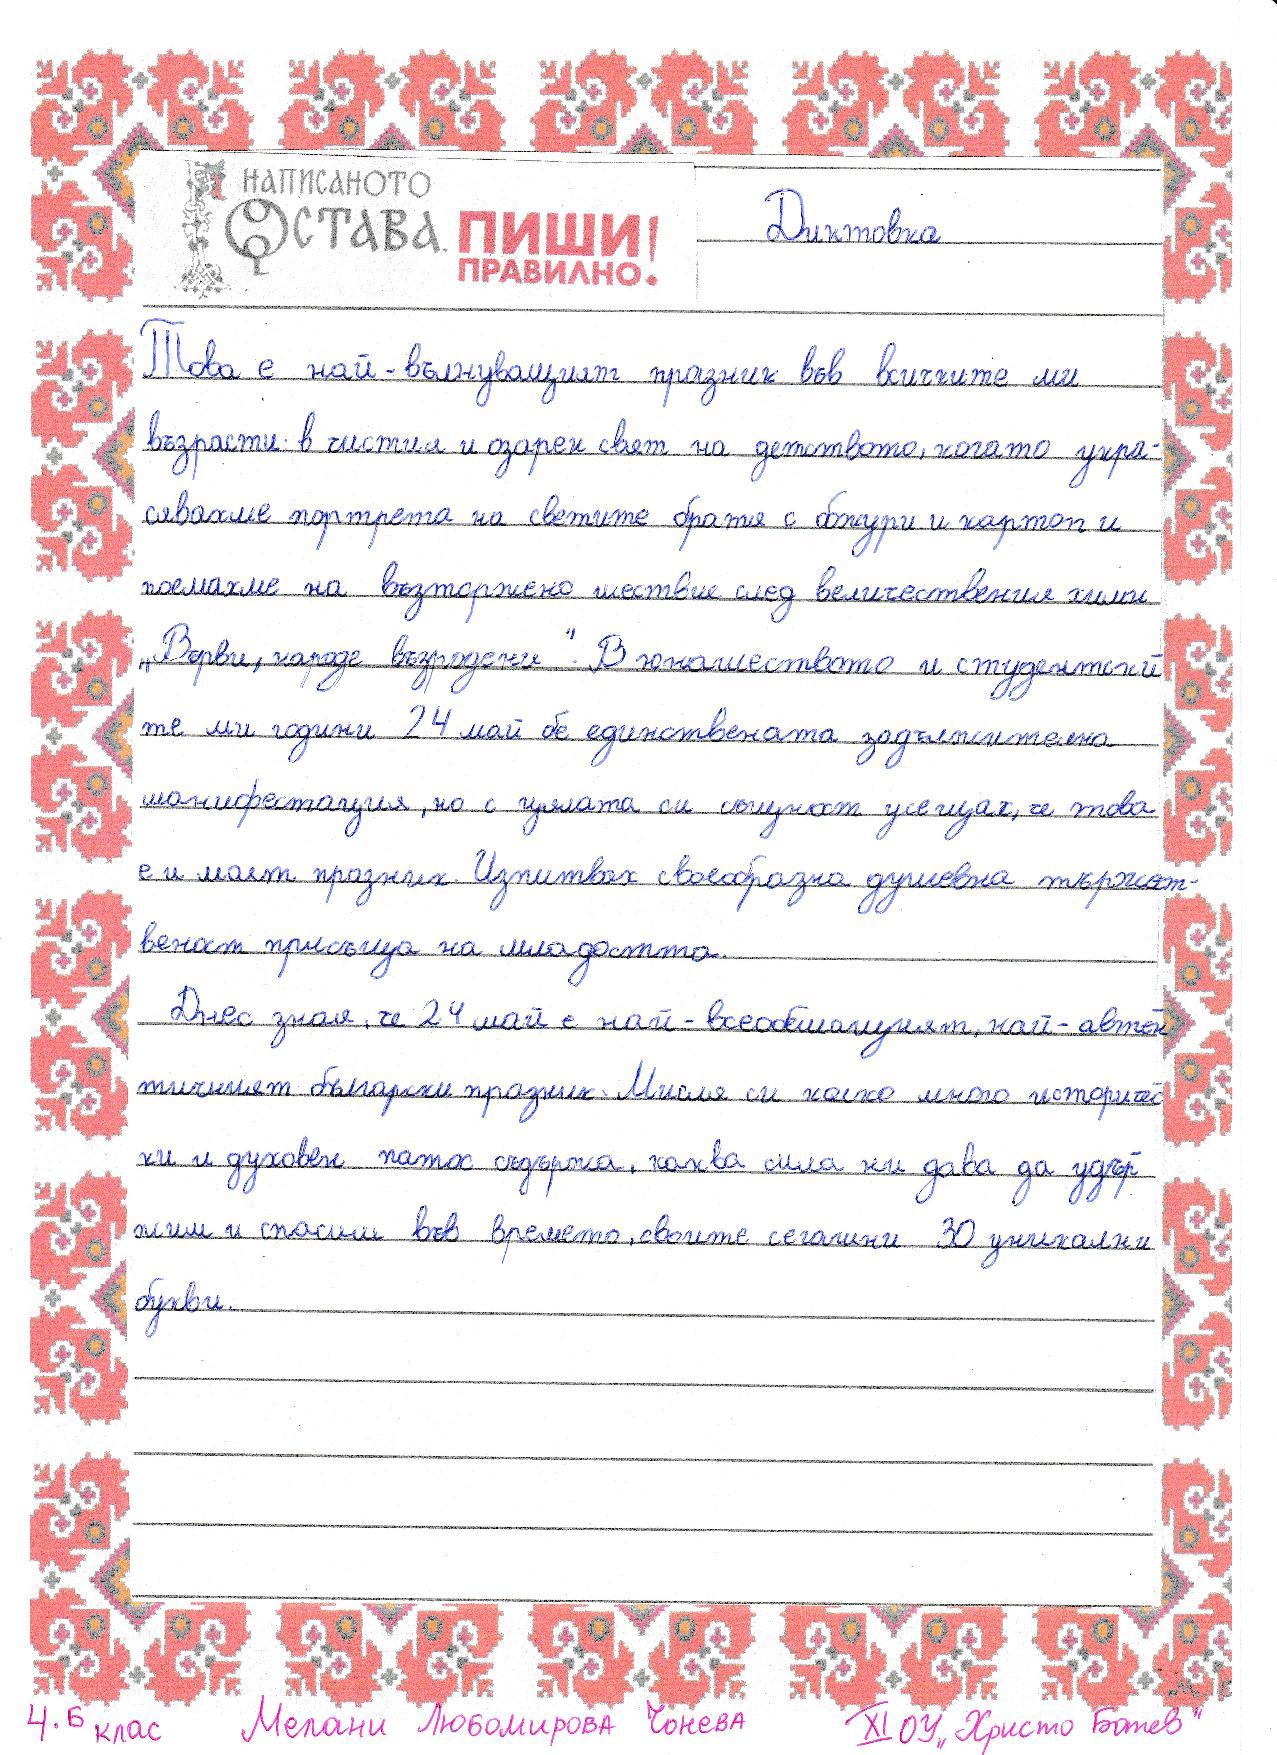 НАПИСАНОТО
ОСТАВА. ПИШИ
ПРАВИЛНО!
Диктовка
Това е най-вълнуващият празник във всичките ми
възрасти: в чистия и озарен свят на детството, когато укра-
сявахме портрета на светите братя с божури и картон и
поемахме на възторжено шествие след величествения химн
„Върви, народе възродени". В юношеството и студентски
те ми години 24 май бе единствената задължителна
манифестация, но с цялата си същност усещах, че това
е и моят празник. Изпитвах своеобразна душевна тържест-
веност присъща на младостта.
Днес зная, че 24 май е най-всеобщащият, най-автен
тичният български празник. Мисля си колко много историчес
ки и духовен патос съдържа, каква сила ни дава да удър
жим и спасим във времето, своите сегашни 30 уникални
букви.
4. Б клас Мелани Любомирова Чонева XI ОУ „Христо Ботев"